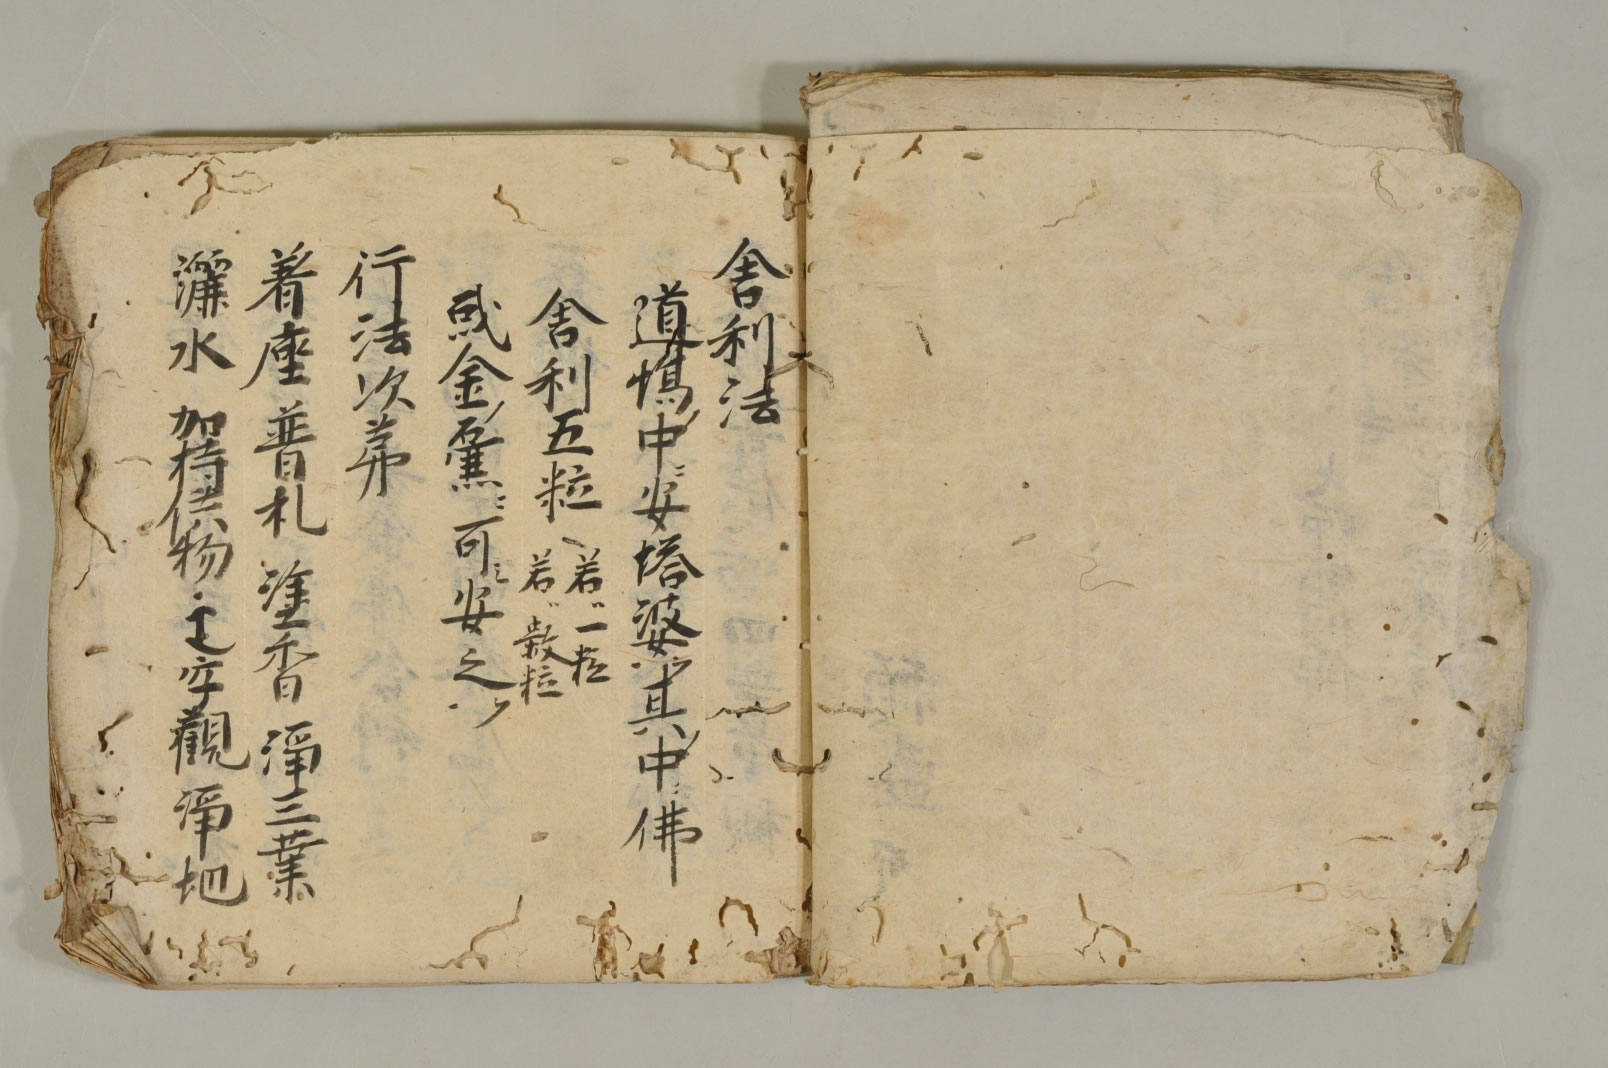 舎利法
道場ノ中ニ安塔婆ヲ其ノ中ニ佛
舎利五粒 若ハ一粒
若ハ数粒
或金ノ薫ニ可安之
行法次第
着座 普礼 塗香 浄三業
灑水 加持供物 字觀 浄地